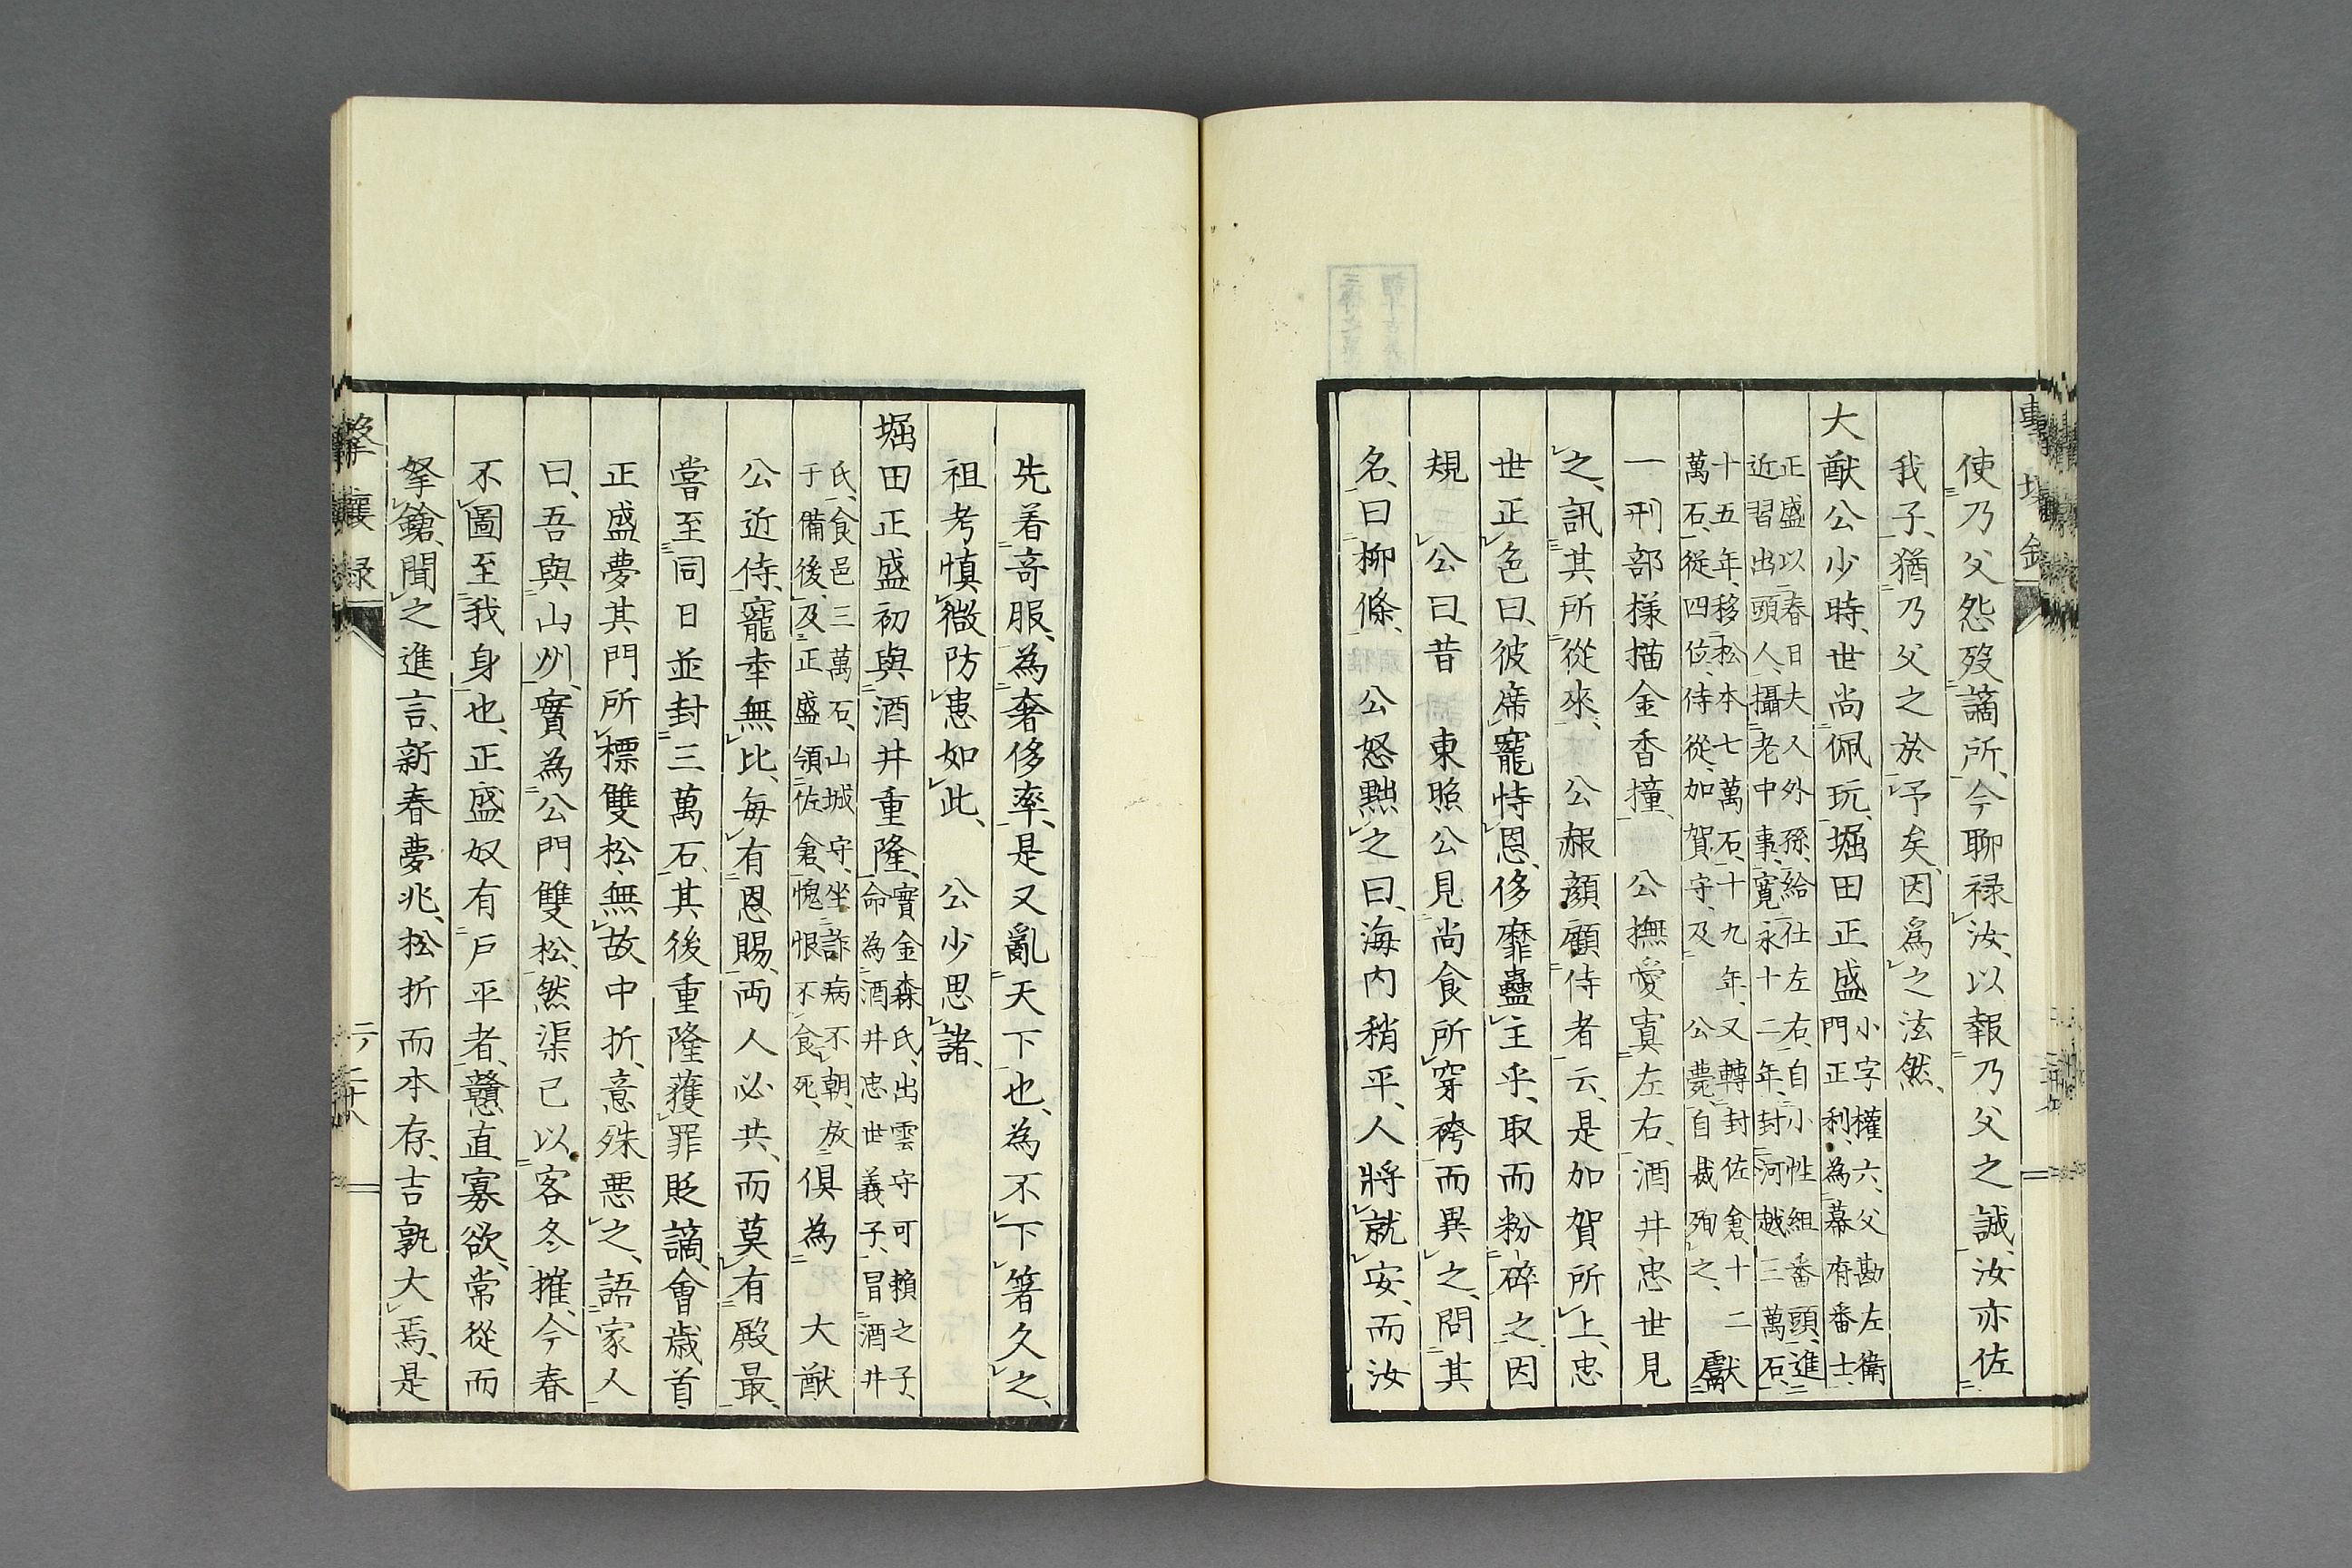 使乃父怨歿謫所、今聊祿汝、以報乃父之誠、汝亦佐
我子、猶乃父之於予矣、因爲之泫然、
大猷公少時、世尚佩玩、堀田正盛小字權六、父勘左衛
門正利、為幕府番士、
正盛以春日夫人外孫、給仕左右、自小性組番頭、進
近習出頭人、攝老中事、寛永十二年、封河越三萬石、
十五年、移松本七萬石、十九年、又轉封佐倉、十二
萬石、從四位、侍從、加賀守、及 公薨、自裁殉之、 獻
一刑部樣描金香撞、 公撫愛寘左右、酒井忠世見
之、訊其所從來、 公赧顏顧侍者云、是加賀所上、忠
世正色曰、彼席寵恃恩、侈靡蠱主乎、取而粉碎之、因
規 公曰、昔 東照公見尚食所穿袴而異之、問其
名、曰柳條、 公怒黜之曰、海內稍平、人將就安、而汝
先着奇服、為奢侈率、是又亂天下也、為不下箸久之、
祖考慎微防患如此、 公少思諸、
堀田正盛初與酒井重隆、實金森氏、出雲守可賴之子、
命為酒井忠世義子、冒酒井
氏、食邑三萬石、山城守、坐詐病不朝、放
于備後、及正盛領佐倉、愧恨不食死、俱為 大猷
公近侍、寵幸無比、每有恩賜、両人必共、而莫有殿最、
嘗至同日並封三萬石、其後重隆獲罪貶謫、會歲首
正盛夢其門所標雙松、無故中折、意殊惡之、語家人
曰、吾與山州、實為公門雙松、然渠已以客冬摧、今春
不圖至我身也、正盛奴有戶平者、戇直寡欲、常從而
拏鎗、聞之進言、新春夢兆、松折而本存、吉孰大焉、是
擊壤録
二ノ二十八